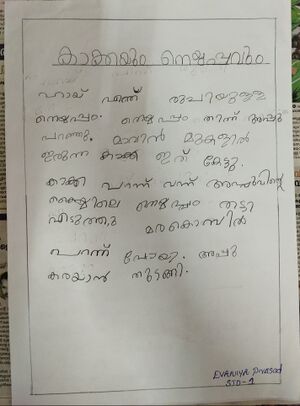 കാക്കയും നെയ്യപ്പവും
ഹായ് എന്ത് രുചിയുള്ള
നെയ്യപ്പം. നെയ്യപ്പം തിന്ന് അപ്പു
പറഞ്ഞു. മാവിൻ മുകളിൽ
ഇരുന്ന കാക്ക ഇത് കേട്ടു.
കാക്ക പറന്ന് വന്ന് അപ്പുവിന്റെ
കൈയിലെ നെയ്യപ്പം തട്ടി
എടുത്തു മരകൊമ്പിൽ
പറന്ന് പോയി. അപ്പു
കരയാൻ തുടങ്ങി.
Evaniya Prasad
STD-1